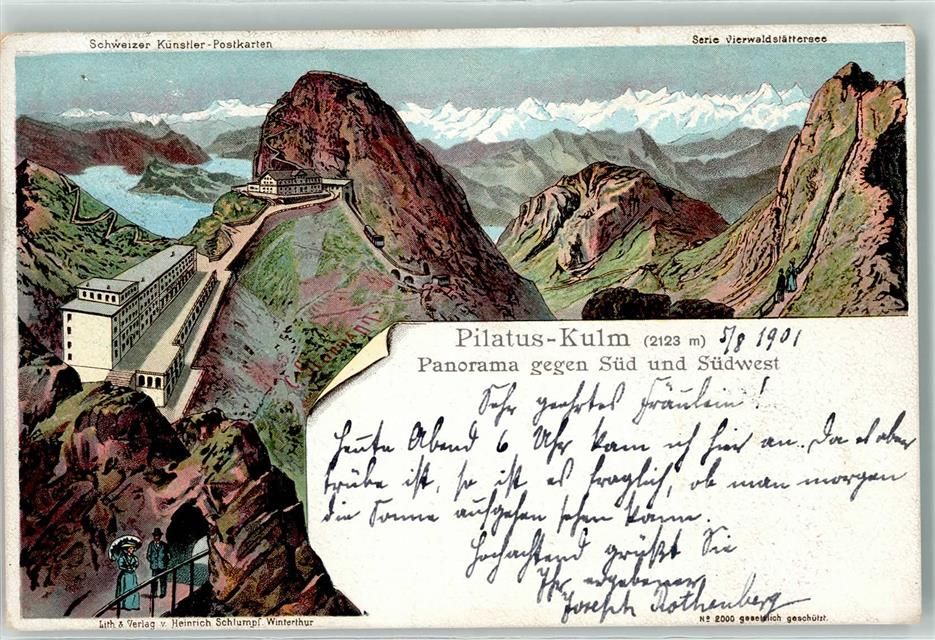 Schweizer Künstler-Postkarten
Serie Vierwaldstättersee
Pilatus-Kulm (2123 m) 5/8 1901
Panorama gegen Süd und Südwest
Sehr geehrtes Fräulein!
Heute Abend 6 Uhr kam ich hier an. Da es aber
trübe ist, so ist es fraglich, ob man morgen
die Sonne aufgehen sehen kann.
Hochachtend grüßt Sie
Ihr ergebener
Joseph Rothenberg
Lith & Verlag v. Heinrich Schlumpf. Winterthur
No 2000 gesetzlich geschützt.